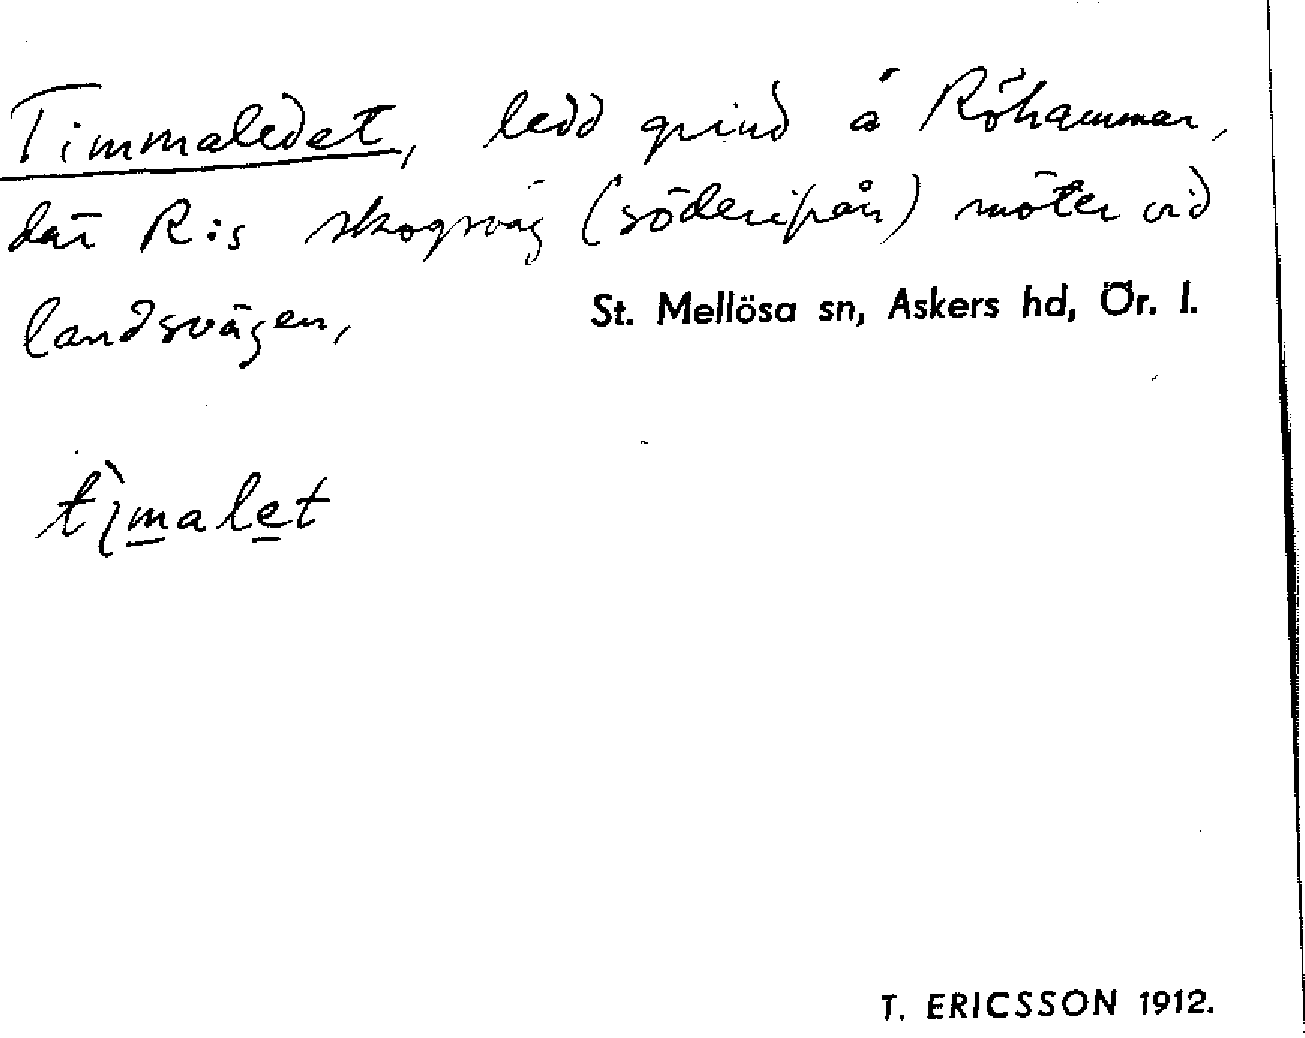 Timmaledet, ledd grind å Röhammar,
där R:s skogsväg (söderifrån) möter vid
landsvägen,
St. Mellösa sn, Askers hd, Ör. l.
tìmalet
T. ERICSSON 1912.